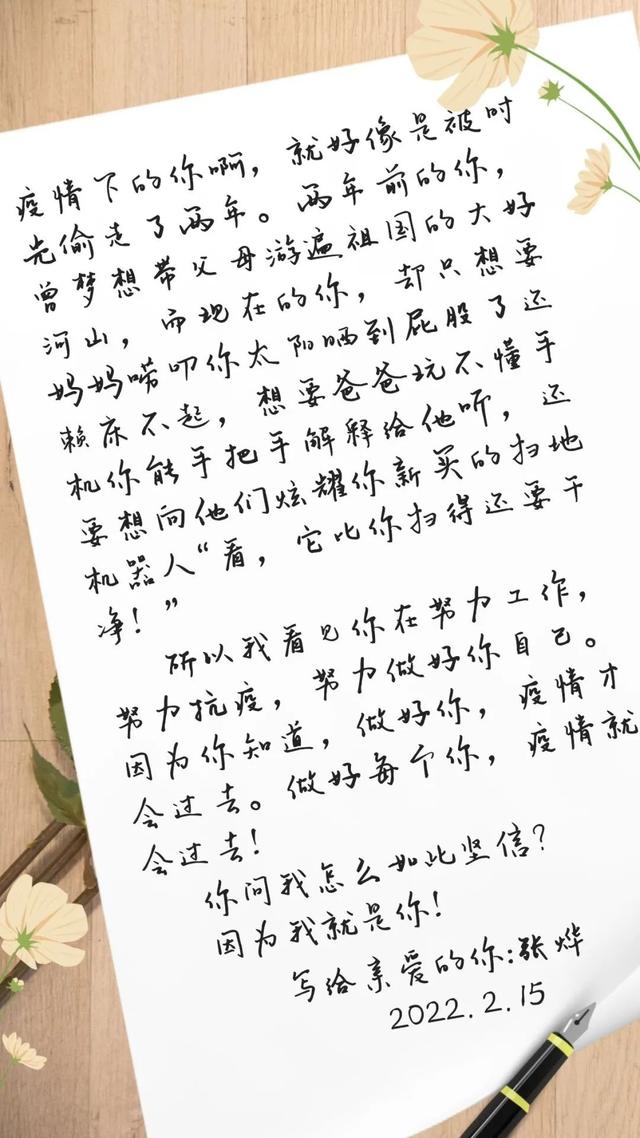 疫情下的你啊，就好像是被时
光偷走了两年。两年前的你，
曾梦想带父母游遍祖国的大好
河山，而现在的你，却只想要
妈妈唠叨你太阳晒到屁股了还
赖床不起，想要爸爸玩不懂手
机你能手把手解释给他听，还
要想向他们炫耀你新买的扫地
机器人“看，它比你扫得还要干
净！”
所以我看见你在努力工作，
努力抗疫，努力做好你自己。
因为你知道，做好你，疫情才
会过去。做好每个你，疫情就
会过去！
你问我怎么如此坚信？
因为我就是你！
写给亲爱的你：张烨
2022.2.15